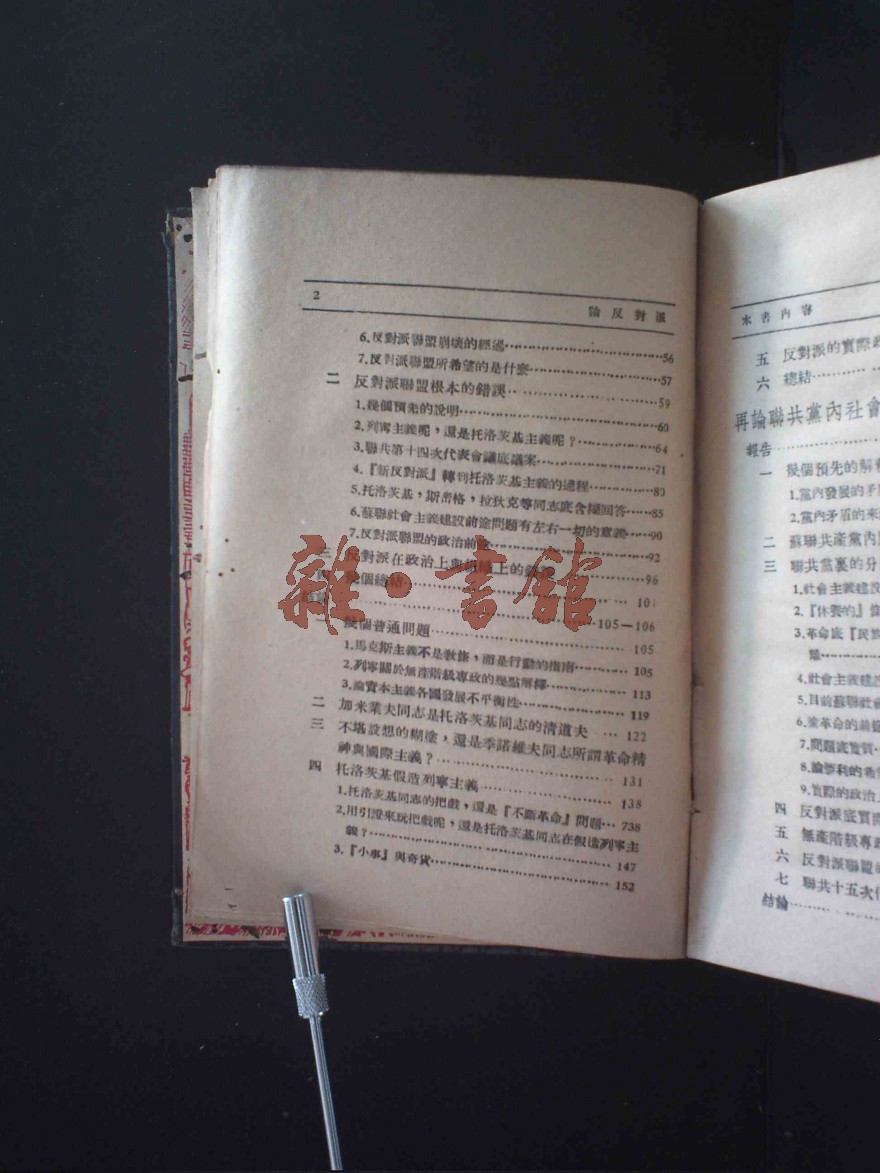 2 論反對派
6.反對派聯盟崩壞的經過……56
7.反對派聯盟所希望的是什麼……57
二 反對派聯盟根本的錯誤……59
1.幾個預先的說明……60
2.列甯主義呢，還是托洛茨基主義呢？……64
3.聯共第十四次代表會議底議案……71
4.『新反對派』轉到托洛茨基主義的過程……80
5.托洛茨基，斯密格，拉狄克等同志底含糊回答……85
6.蘇聯社會主義建設前途問題有左右一切的意義……90
7.反對派聯盟的政治前途……92
三 反對派在政治上與組織上的……96
四 幾個總結……10
結論……105—106
一 幾個普通問題……105
1.馬克斯主義不是教條，而是行動的指南……105
2.列寧關於無產階級專政的幾點解釋……113
3.論資本主義各國發展不平衡性……119
二 加米業夫同志是托洛茨基同志的清道夫…122
三 不堪設想的糊塗，還是季諾維夫同志所謂革命精
神與國際主義？……131
四 托洛茨基假造列寧主義……138
1.托洛茨基同志的把戲，還是『不斷革命』問題…738
2.用引證來玩把戲呢，還是托洛茨基同志在假造列寧主
義？……147
3.『小事』與奇貨……152
本書內容
五 反對派的實際
六 總結……
再論聯共黨內社會
報告……
一 幾個預先的解
1.黨內發展的矛
2.黨內矛盾的來
二 蘇聯共產黨內
三 聯共黨裏的分
1.社會主義建設
2.『休養的』
3.革命底『民族
4.社會主義建
5.目前蘇聯社會
6.論革命的前途
7.問題底實質…
8.論勝利的
9.實際的政治
四 反對派底實際
五 無產階級專政
六 反對派聯盟的
七 聯共十五次代
結論……
雜·書館